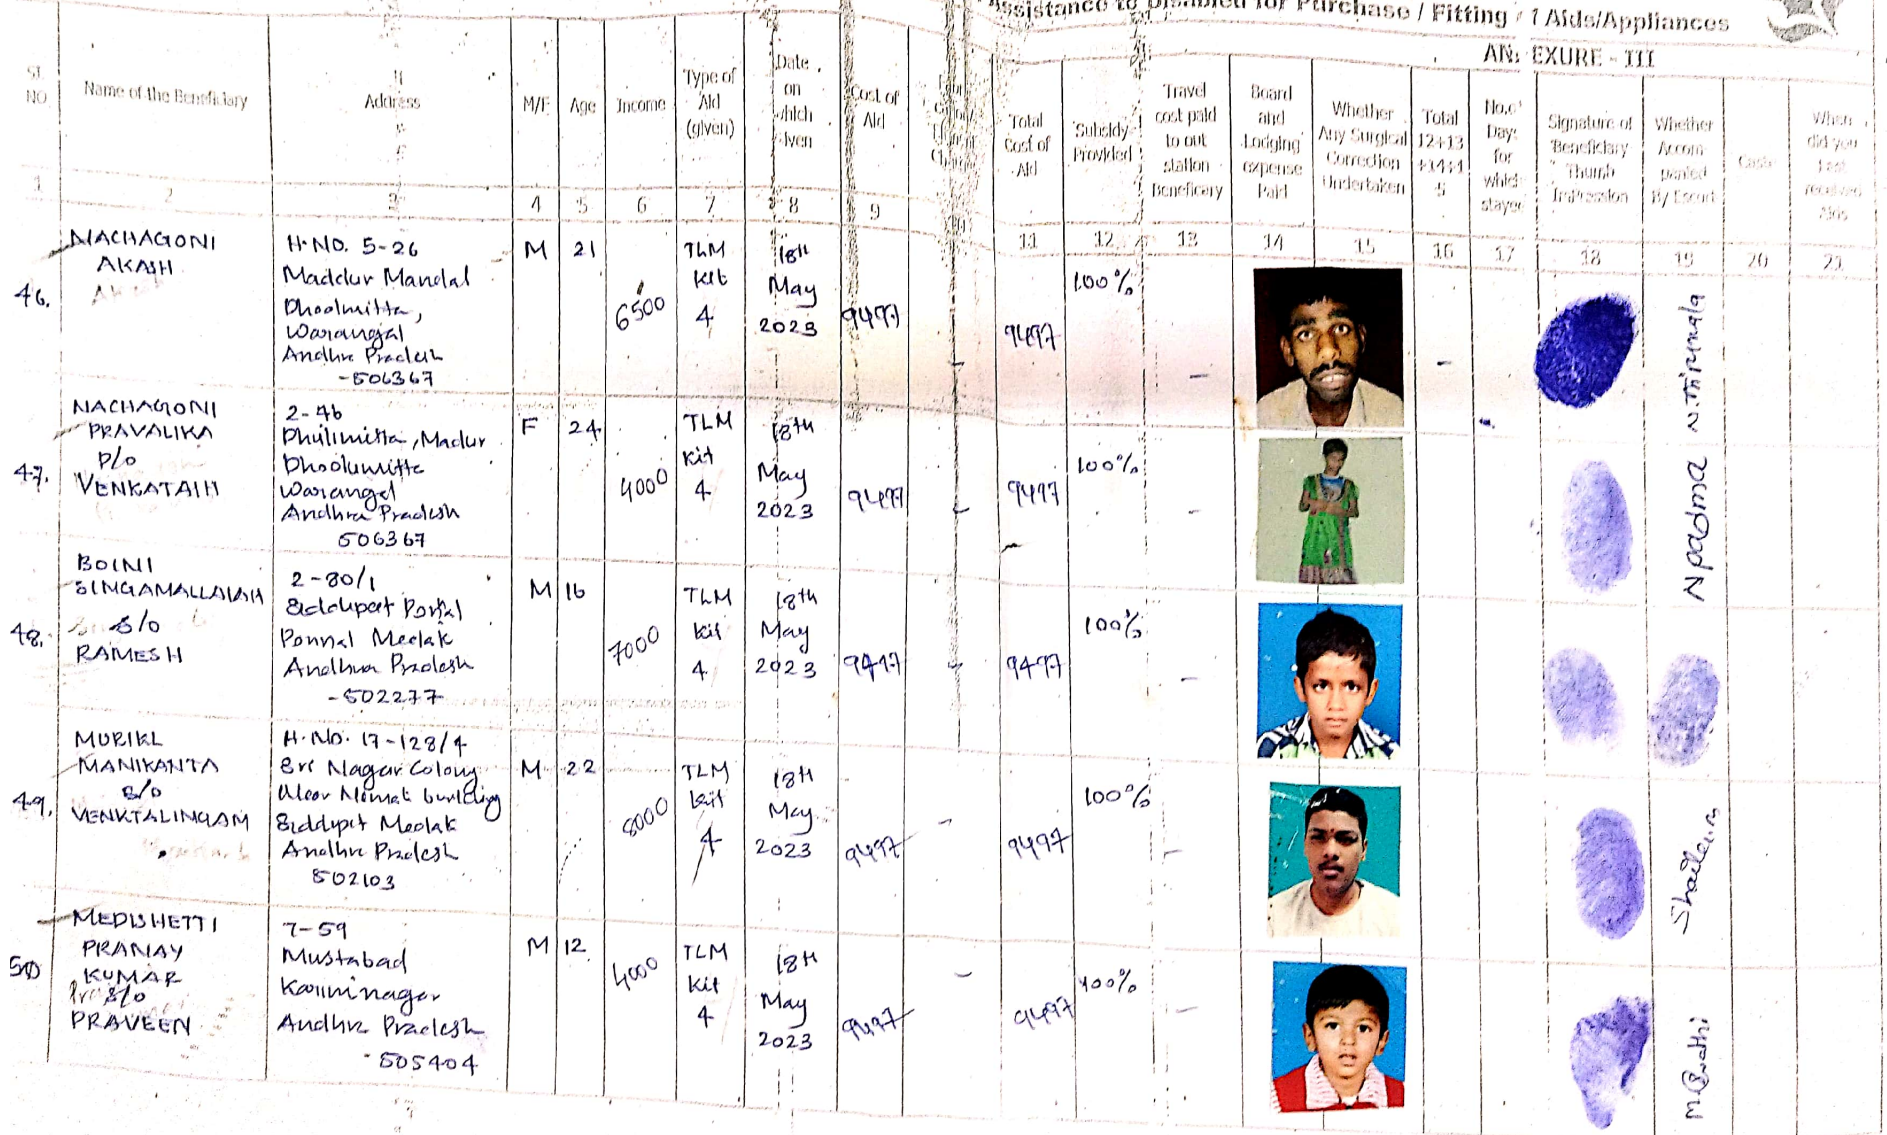 Assistance to Disabled for Purchase / Fitting / Aids/Appliances
ANNEXURE - III
SL. NO.
Name of the Beneficiary
Address
M/F
Age
Income
Type of
Aid
(given)
Date
on
which
given
Cost of
Aid
Total
Cost of
Aid
Subsidy
Provided
Travel
cost paid
to out
station
Beneficary
Board
and
Lodging
expense
Paid
Whether
Any Surgical
Correction
Undertaken
Total
12+13
+14+1
5
No.of
Days
for
which
stayed
Signature of
Beneficiary
Thumb
Impression
Whether
Accom
panied
By Escort
Cash
When
did you
Last
received
Aids
1 2 3 4 5 6 7 8 9 10 11 12 13 14 15 16 17 18 19 20 21
46.
NACHAGONI
AKASH
H.NO. 5-26
Maddur Mandal
Dhoolmitta,
Warangal
Andhra Pradesh
-506367
M
21
6500
TLM
Kit
4
18th
May
2023
9497
9497
100%
N.nirmala
47.
NACHAGONI
PRAVALIKA
D/o
VENKATAIH
2-46
Dhulimitta, Madur
Dhoolumitta
Warangal
Andhra Pradesh
506367
F
24
4000
TLM
Kit
4
18th
May
2023
9497
9497
100%
N padma
48.
BOINI
SINGAMALLAIAH
S/o
RAMESH
2-80/1
Siddipet Portal
Ponnal Medak
Andhra Pradesh
-502277
M
16
7000
TLM
Kit
4
18th
May
2023
9497
9497
100%
49.
MURIKI
MANIKANTA
S/o
VENKTALINGAM
H.No. 17-128/4
Sri Nagar Colony
building
Siddipet Medak
Andhra Pradesh
502103
M
22
8000
TLM
Kit
4
18th
May
2023
9497
9497
100%
50
MEDISHETTI
PRANAY
KUMAR
S/o
PRAVEEN
7-59
Mustabad
Karimnagar
Andhra Pradesh
-505404
M
12
4000
TLM
Kit
4
18th
May
2023
9497
9497
100%